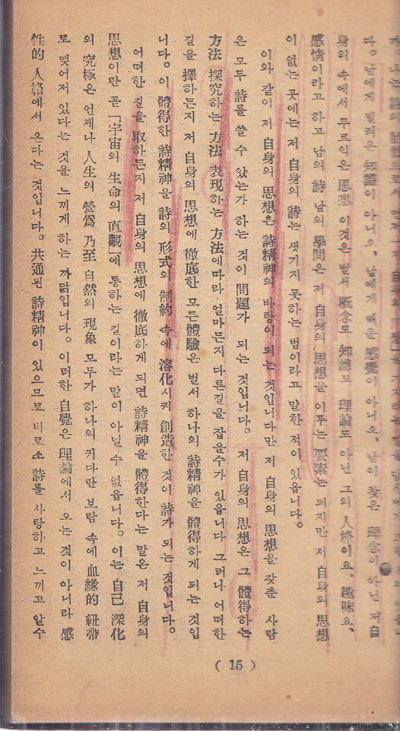 다。남에게 빌려온 知識이 아니오、남에게 배운 感覺이 아니오、남이 찾은 理念이 아닌 저自
身의 속에서 무르익은 思想 이것은 벌서 槪念도 知識도 理論도 아닌 그의 人格이요、趣味요、
感情이라고 하고 남의 詩 남의 學問은 저 自身의 思想을 이루는 要素는 되지만 저 自身의 思想
이 없는 곳에는 저 自身의 詩는 생기지 못하는 법이라고 말한 적이 있읍니다。
이와 같이 저 自身의 思想은 詩精神의 바탕이 되는 것입니다만 저 自身의 思想을 갖춘 사람
은 모두 詩를 쓸 수 있는가 하는 것이 問題가 되는 것입니다。저 自身의 思想은 그 體得하는
方法 探究하는 方法 表現하는 方法에 따라 얼마든지 다른 길을 잡을 수가 있읍니다 그러나 어떠한
길을 擇하든지 저 自身의 思想에 徹底한 모든 體驗은 벌서 하나의 詩精神을 體得하게 되는 것입
니다。이 體得한 詩精神을 詩의 形式의 制約 속에 溶化시켜 創造한 것이 詩가 되는 것입니다。
어떠한 길을 取하든지 저 自身의 思想에 徹底하게 되면 詩精神을 體得한다는 말은 저 自身의
思想이란 곧 「宇宙의 生命의 直觀」에 통하는 길이라는 말이 아닐 수 없읍니다。이는 自己 深化
의 究極은 언제나 人生의 營爲 乃至 自然의 現象 모두가 하나의 커다만 보람 속에 血緣的 紐帶
로 맺어저 있다는 것을 느끼게 하는 까닭입니다。이러한 自覺은 理論에서 오는 것이 아니라 感
性的 人格에서 온다는 것입니다。共通된 詩精神이 있으므로 비로소 詩를 사랑하고 느끼고 알수
( 15 )